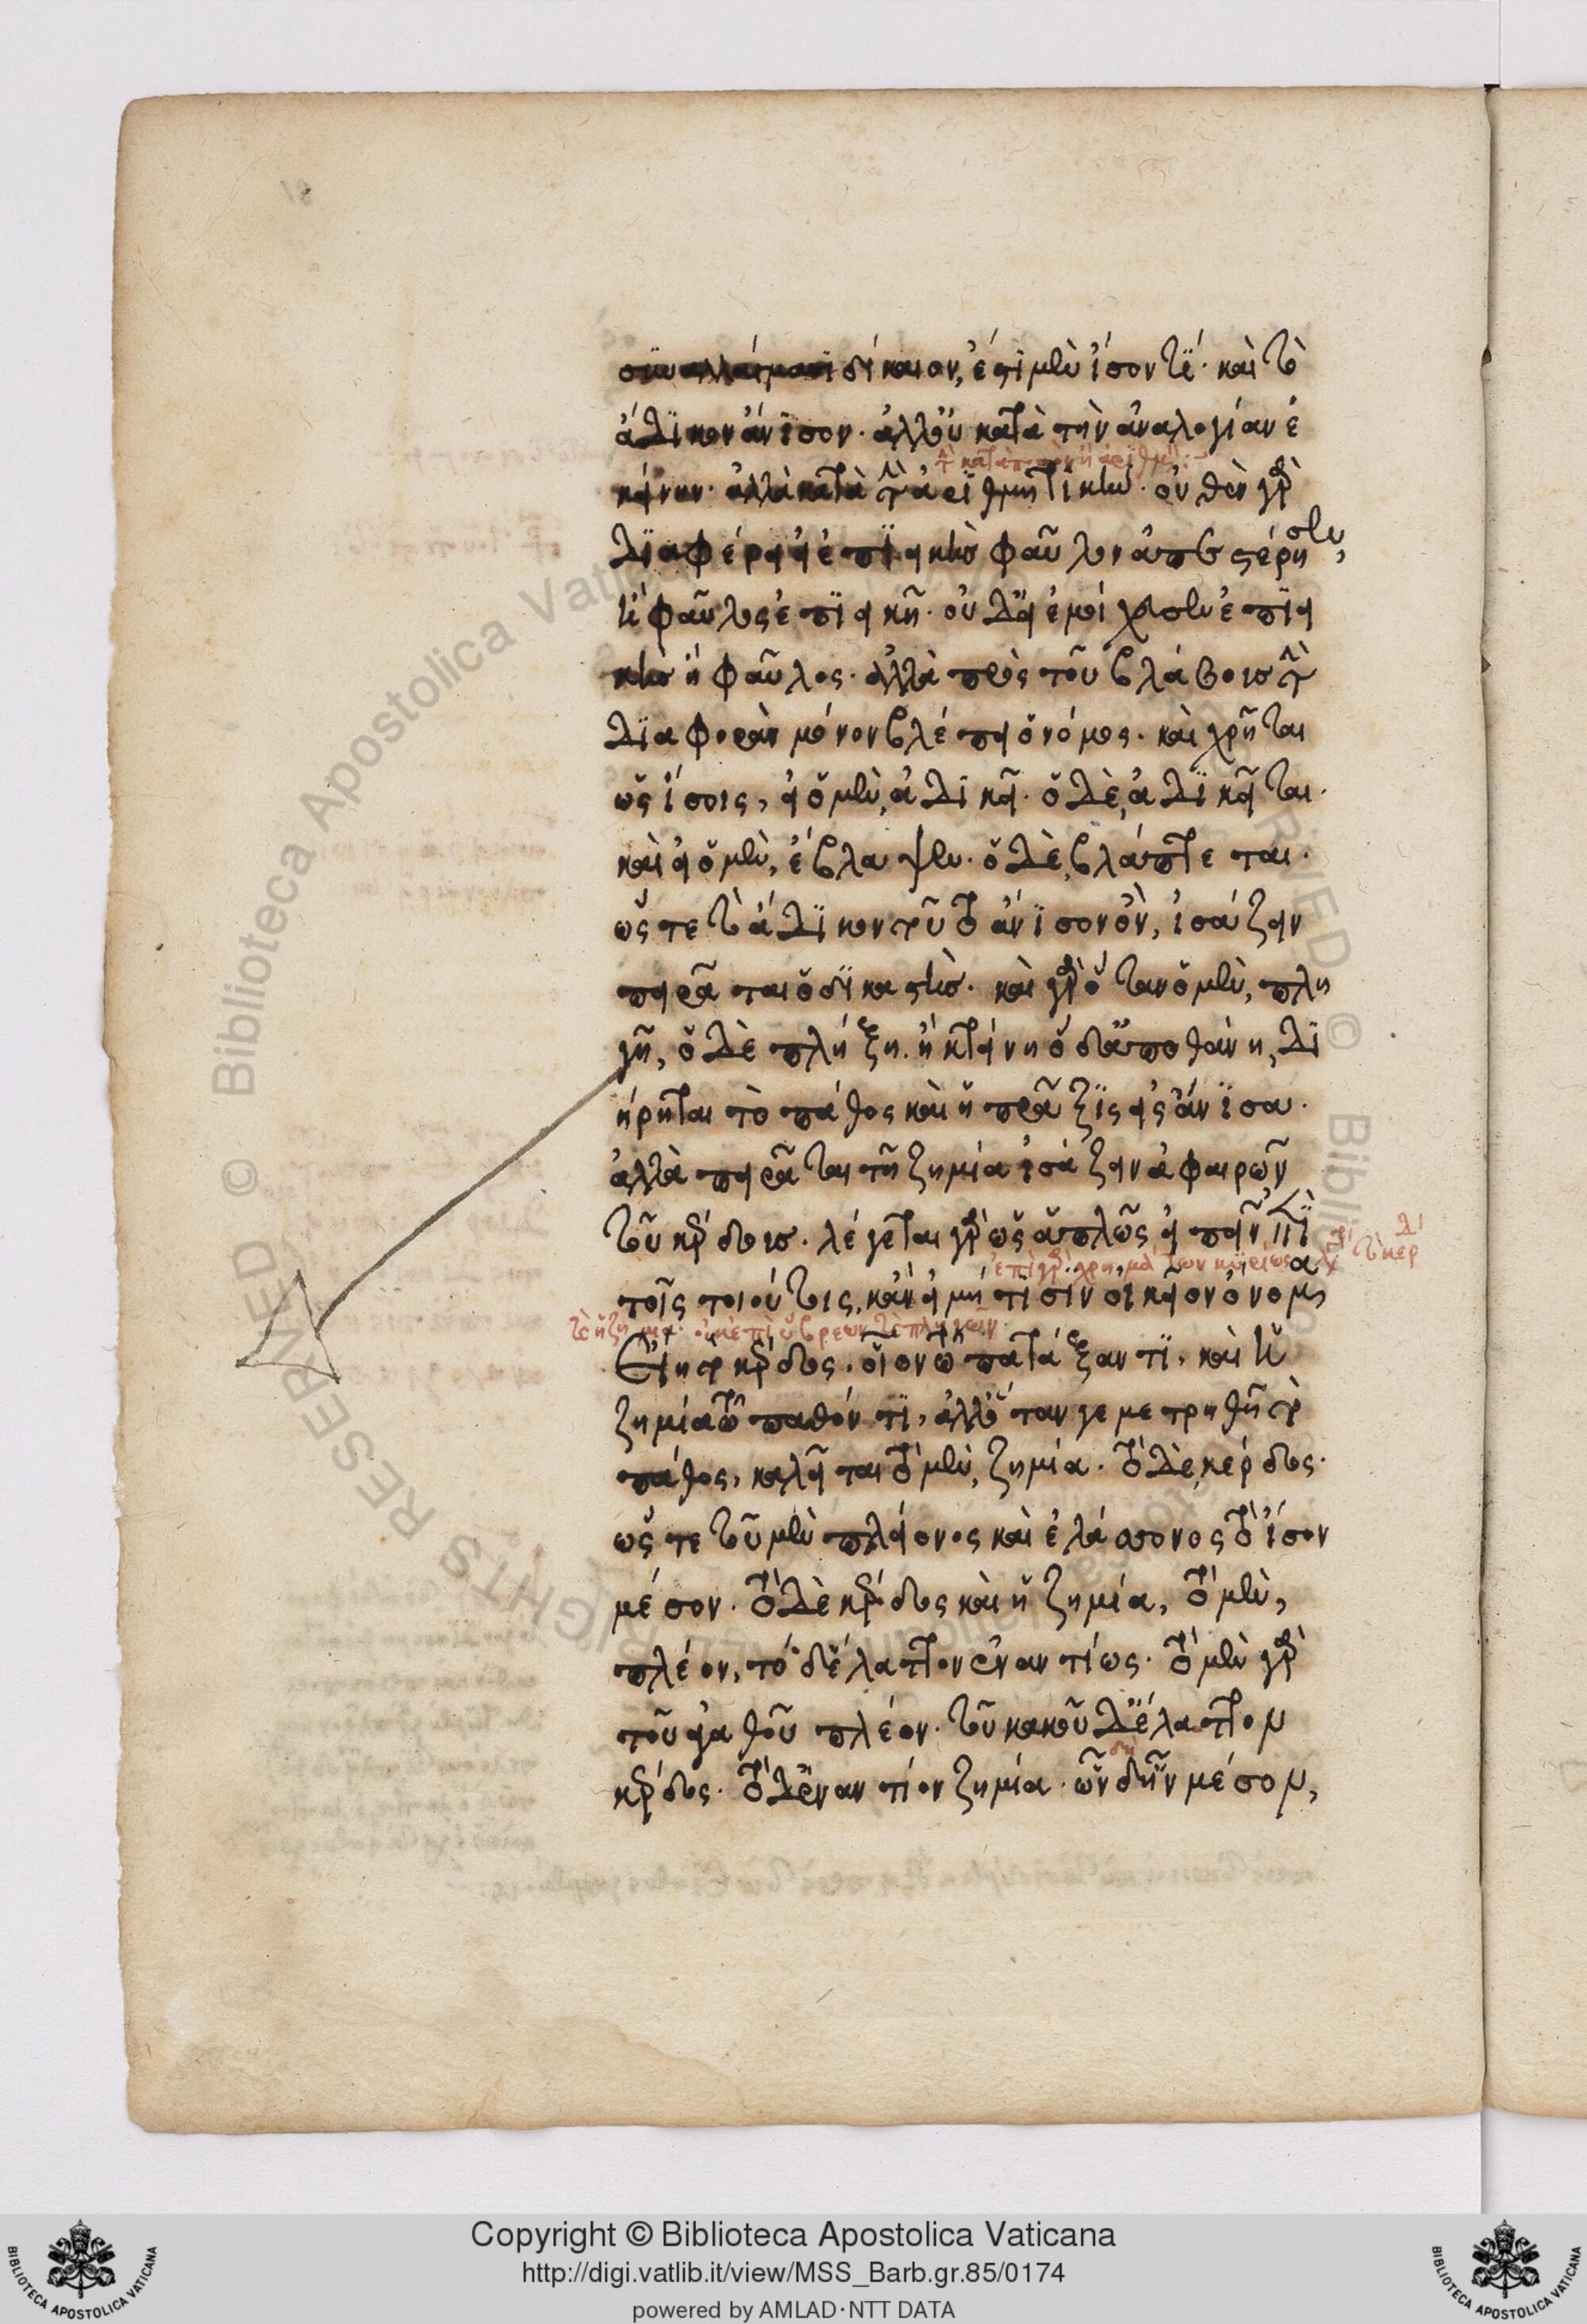 συναλλάγμασι δίκαιον, ἐστὶ μὲν ἴσον τί· καὶ τὸ
ἄδικον ἄνισον· ἀλλ' οὐ κατὰ τὴν ἀναλογίαν ἐ
κείνην· ἀλλὰ κατὰ τὴν ἀριθμητικήν· οὐθὲν γὰρ
διαφέρει εἰ ἐπιεικὴς φαῦλον ἀπεστέρησεν,
ἢ φαῦλος ἐπιεικῆ· οὐδ' εἰ ἐμοίχευσεν ἐπιει
κὴς ἢ φαῦλος· ἀλλὰ πρὸς τοῦ βλάβους τὴν
διαφορὰν μόνον βλέπει ὁ νόμος· καὶ χρῆται
ὡς ἴσοις, εἰ ὁ μὲν, ἀδικεῖ· ὁ δὲ, ἀδικεῖται·
καὶ εἰ ὁ μὲν, ἔβλαψεν· ὁ δὲ, βλάπτεται·
ὥστε τὸ ἄδικον τοῦτο ἄνισον ὂν, ἰσάζειν
πειρᾶται ὁ δικαστής· καὶ γὰρ ὅταν ὁ μὲν, πλη
γῇ, ὁ δὲ πλήξῃ· ἢ κτείνῃ ὁ δ' ἀποθάνῃ, δι
ῄρηται τὸ πάθος καὶ ἡ πρᾶξις εἰς ἄνισα·
ἀλλὰ πειρᾶται τῇ ζημίᾳ ἰσάζειν ἀφαιρῶν
τοῦ κέρδους· λέγεται γὰρ ὡς ἁπλῶς εἰπεῖν ἐπὶ
τοῖς τοιούτοις, κἂν εἰ μή τισιν οἰκεῖον ὄνομα
εἴη τὸ κέρδος, οἷον τῷ πατάξαντι, καὶ ἡ
ζημία τῷ παθόντι, ἀλλ' ὅταν γε μετρηθῇ τὸ
πάθος, καλεῖται τὸ μὲν, ζημία· τὸ δὲ, κέρδος·
ὥστε τοῦ μὲν πλείονος καὶ ἐλάσσονος τὸ ἴσον
μέσον· τὸ δὲ κέρδος καὶ ἡ ζημία, τὸ μὲν,
πλέον, τὸ δ' ἔλαττον ἐναντίως· τὸ μὲν γὰρ
τοῦ ἀγαθοῦ πλέον· τοῦ κακοῦ δ' ἔλαττον
κέρδος· τὸ δ' ἐναντίον ζημία· ὧν δ' ἦν μέσον,
Copyright © Biblioteca Apostolica Vaticana
http://digi.vatlib.it/view/MSS_Barb.gr.85/0174
powered by AMLAD·NTT DATA
BIBLIOTECA APOSTOLICA VATICANA
BIBLIOTECA APOSTOLICA VATICANA